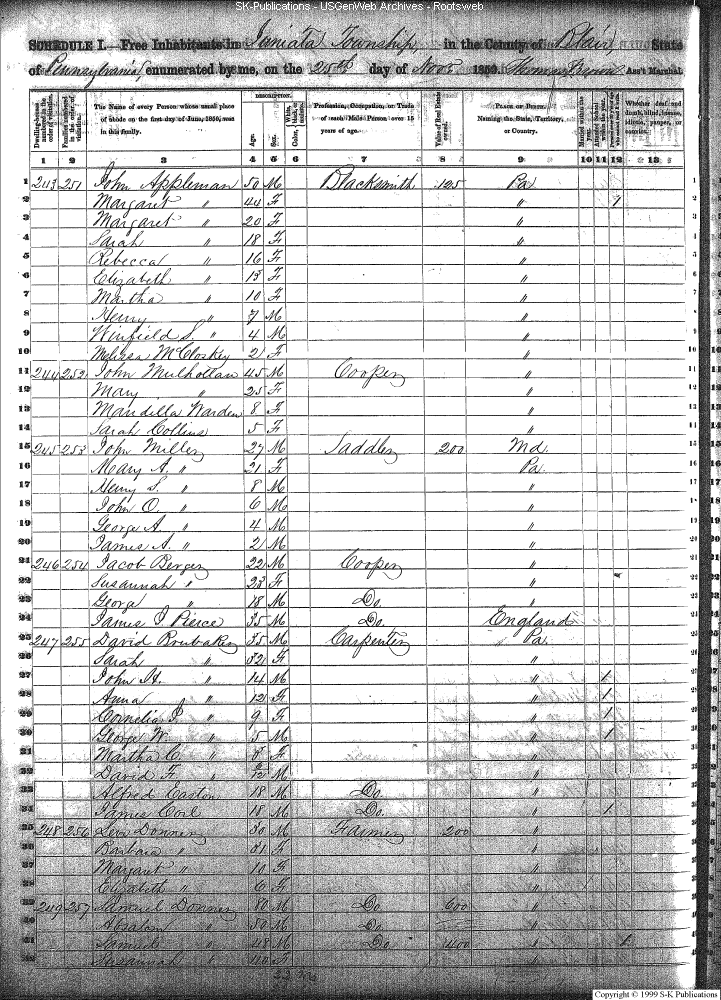 SK-Publications - USGenWeb Archives - Rootsweb
SCHEDULE I.—Free Inhabitants in Juniata Township in the County of Blair State
of Pennsylvania enumerated by me, on the 25th day of Novr 1850. Ass't Marshal.
Dwelling-houses numbered in the order of visitation.
Families numbered in the order of visitation.
The Name of every Person whose usual place of abode on the first day of June, 1850, was in this family.
DESCRIPTION.
Age.
Sex.
Color, White, black, or mulatto.
Profession, Occupation, or Trade of each Male Person over 15 years of age.
Value of Real Estate owned.
PLACE OF BIRTH. Naming the State, Territory, or Country.
Married within the year.
Attended School within the year.
Whether deaf and dumb, blind, insane, idiotic, pauper, or convict.
1 2 3 4 5 6 7 8 9 10 11 12 13
1 243 251 John Appleman 50 M Blacksmith 125 Pa 1
2 Margaret " 44 F " 2
3 Margaret " 20 F " 3
4 Sarah " 18 F " 4
5 Rebecca " 16 F " 5
6 Elizabeth " 13 F " 6
7 Martha " 10 F " 7
8 Henry " 7 M " 8
9 Winfield S. " 4 M " 9
10 Melissa McCloskey 2 F " 10
11 244 252 John Mulhollan 45 M Cooper " 11
12 Mary " 25 F " 12
13 Mandilla Warden 8 F " 13
14 Sarah Collins 5 F " 14
15 245 253 John Miller 27 M Saddler 200 Md. 15
16 Mary A. " 21 F Pa 16
17 Henry S. " 8 M " 17
18 John O. " 6 M " 18
19 George A. " 4 M " 19
20 James A. " 2 M " 20
21 246 254 Jacob Berger 22 M Cooper " 21
22 Susannah " 23 F " 22
23 George " 18 M Do. " 23
24 James J Pierce 35 M Do. England 24
25 247 255 David Brubaker 35 M Carpenter Pa 25
26 Sarah " 32 F " 26
27 John H. " 14 M " 1 27
28 Anna " 12 F " 1 28
29 Cornelia J. " 9 F " 1 29
30 George W. " 5 M " 1 30
31 Martha C. " F " 31
32 David F. " M " 32
33 Alfred Easton 18 M Do. " 33
34 James Corl 18 M Do. " 1 34
35 248 256 Levi Donner 30 M Farmer 200 " 35
36 Barbara " 31 F " 36
37 Margaret " 10 F " 37
38 Elizabeth " 6 F " 38
39 249 257 Samuel Donner 80 M Do. 600 " 39
40 Absalom " 50 M Do. " 40
41 Samuel " 48 M Do 400 " 1 41
42 Susannah " 40 F " 42
Copyright © 1999 S-K Publications